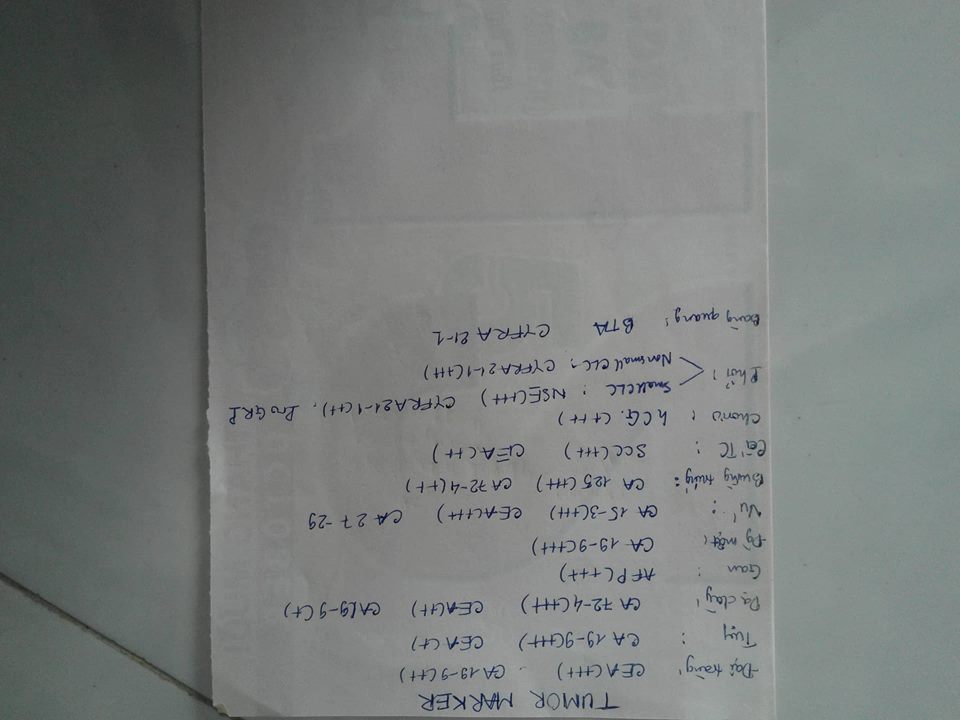 TUMOR MARKER
Đại tràng: CEA (+++) . CA 19-9 (++)
Tụy : CA 19-9 (+++) CEA (+)
Dạ dày: CA 72-4 (+++) CEA (++) CA 19-9 (+)
Gan : AFP (+++)
Đg mật: CA 19-9 (+++)
Vú : CA 15-3 (+++) CEA (+++) CA 27-29
Buồng trứng: CA 125 (+++) CA 72-4 (++)
Cổ TC : SCC (+++) CEA (++)
Chorio : hCG. (+++)
Phổi : Small CLC : NSE (+++) CYFRA 21-1 (++). Pro GRP
Non small CLC : CYFRA 21-1 (+++)
Bàng quang: BTA CYFRA 21-1